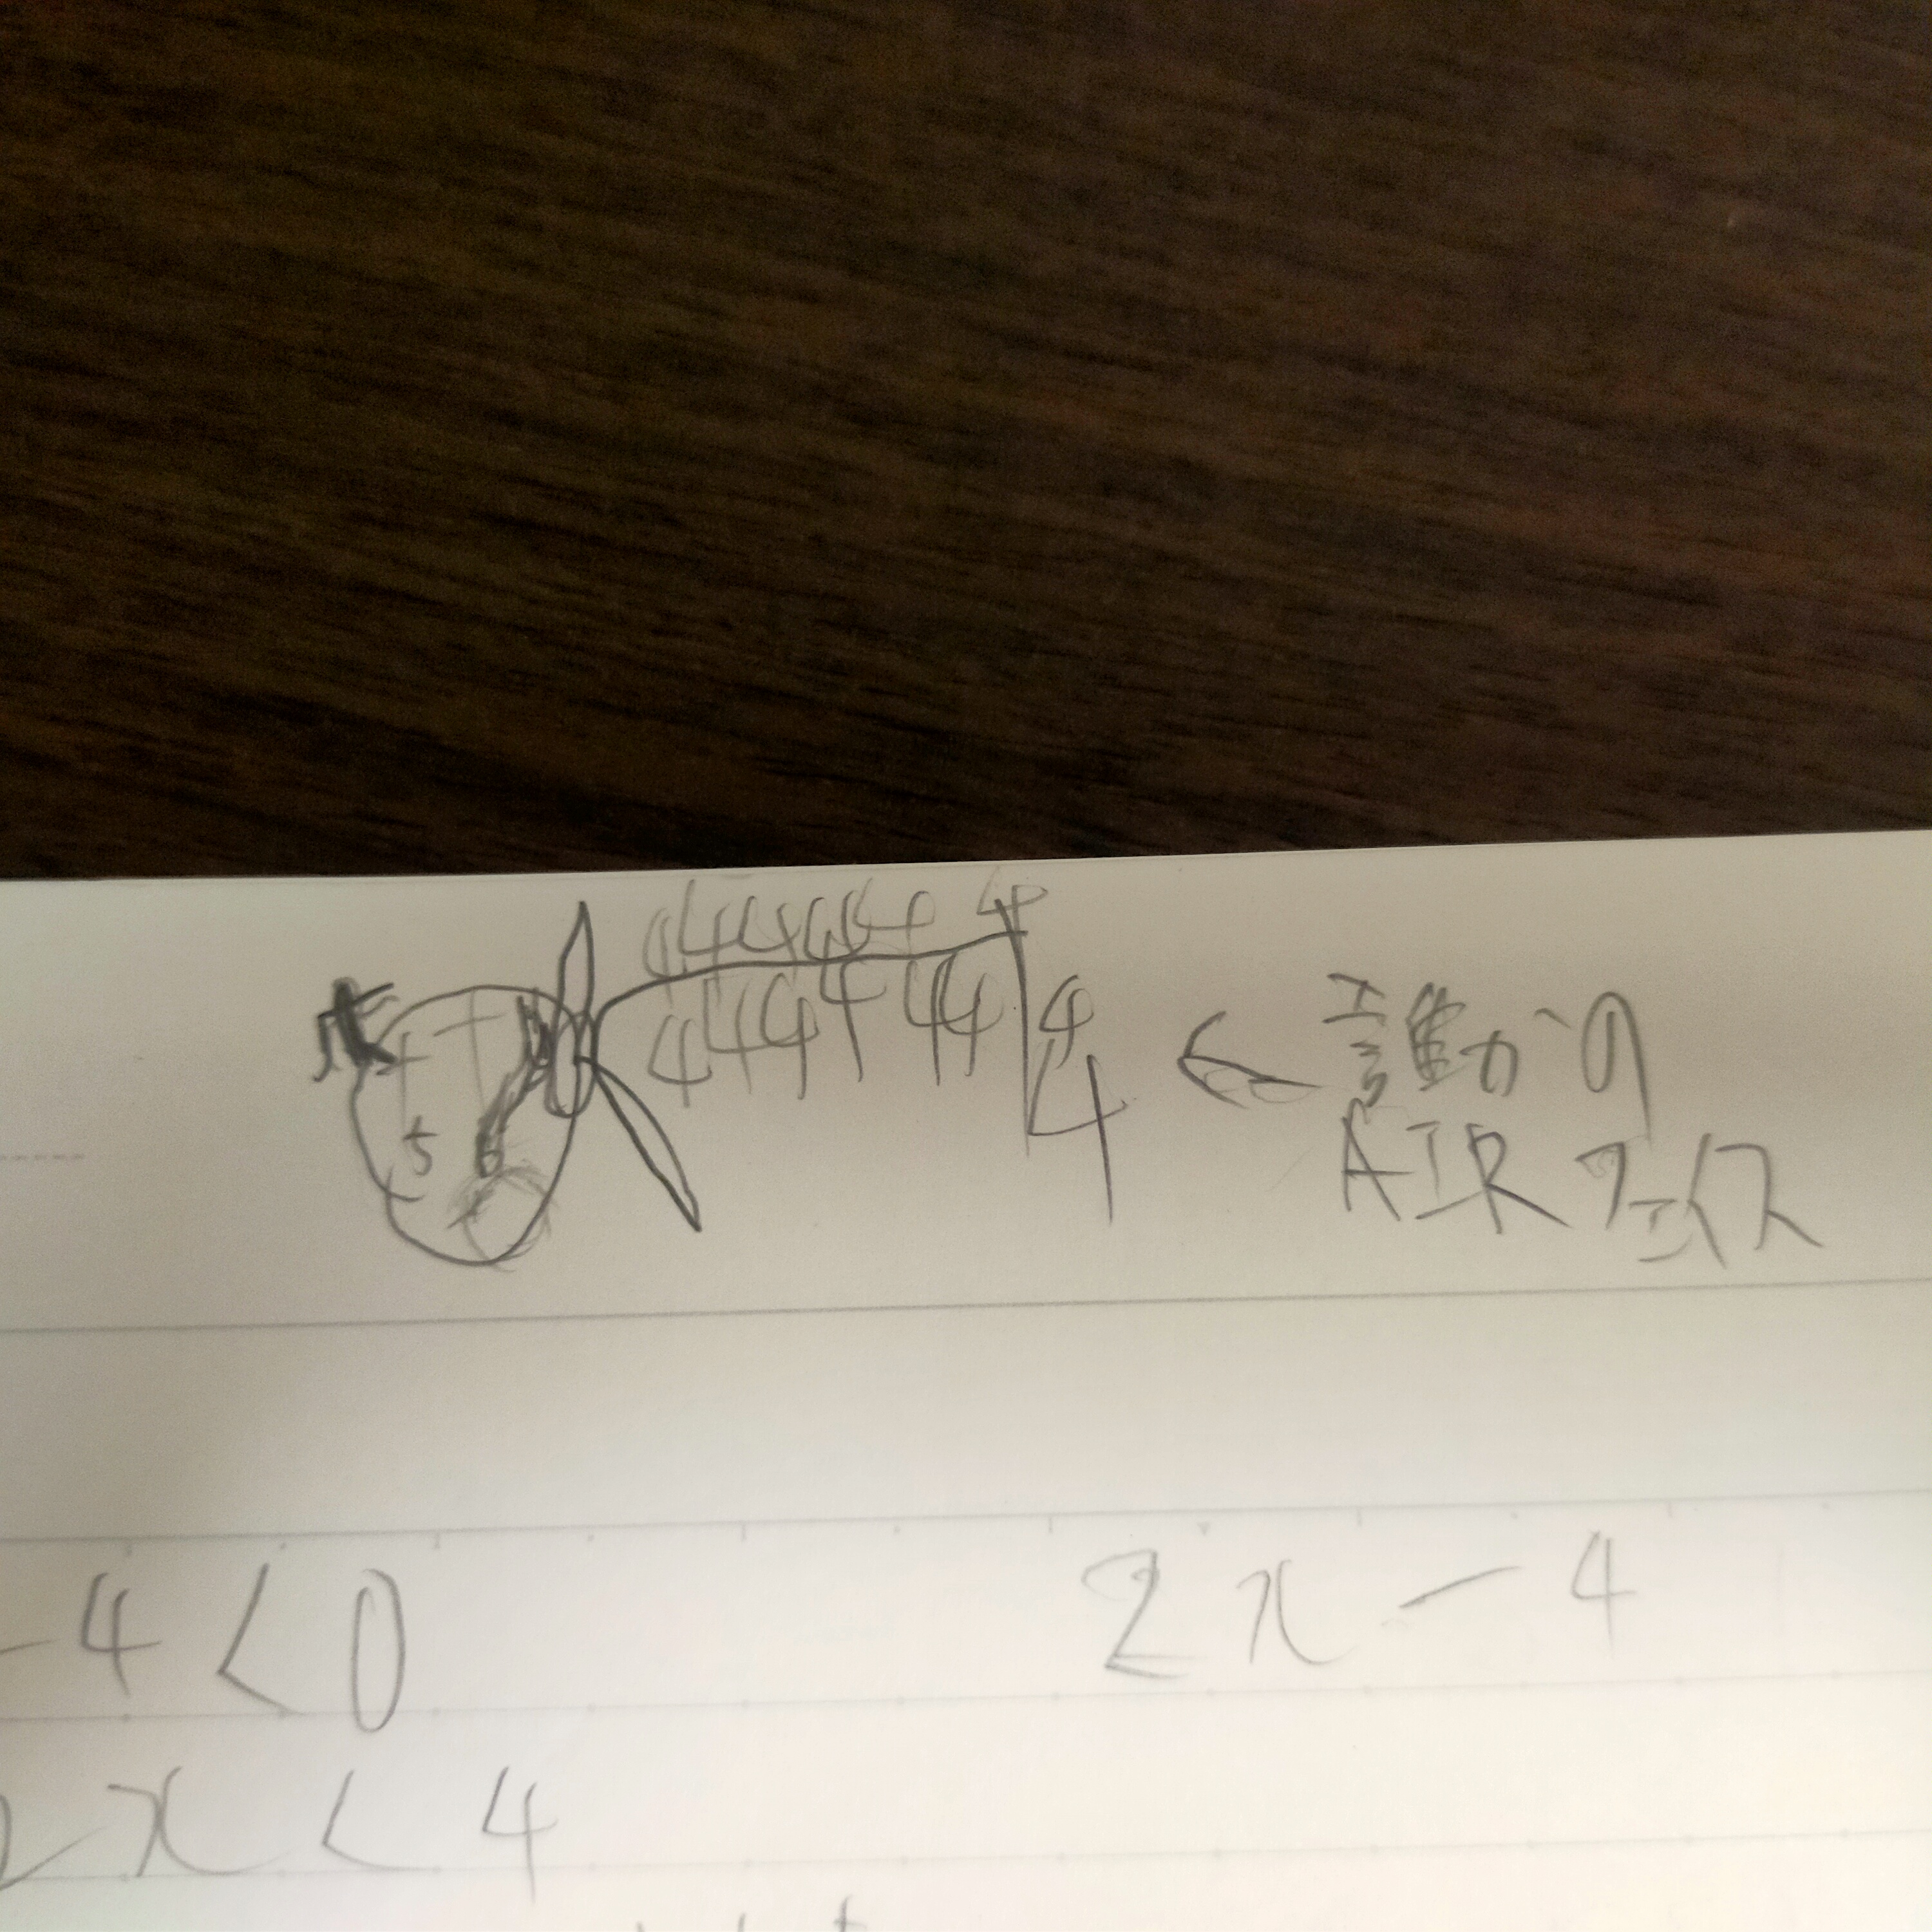 444444
4444444
4
← 誰かの
AIRフェイス
5
-4<0
2x-4
2x<4